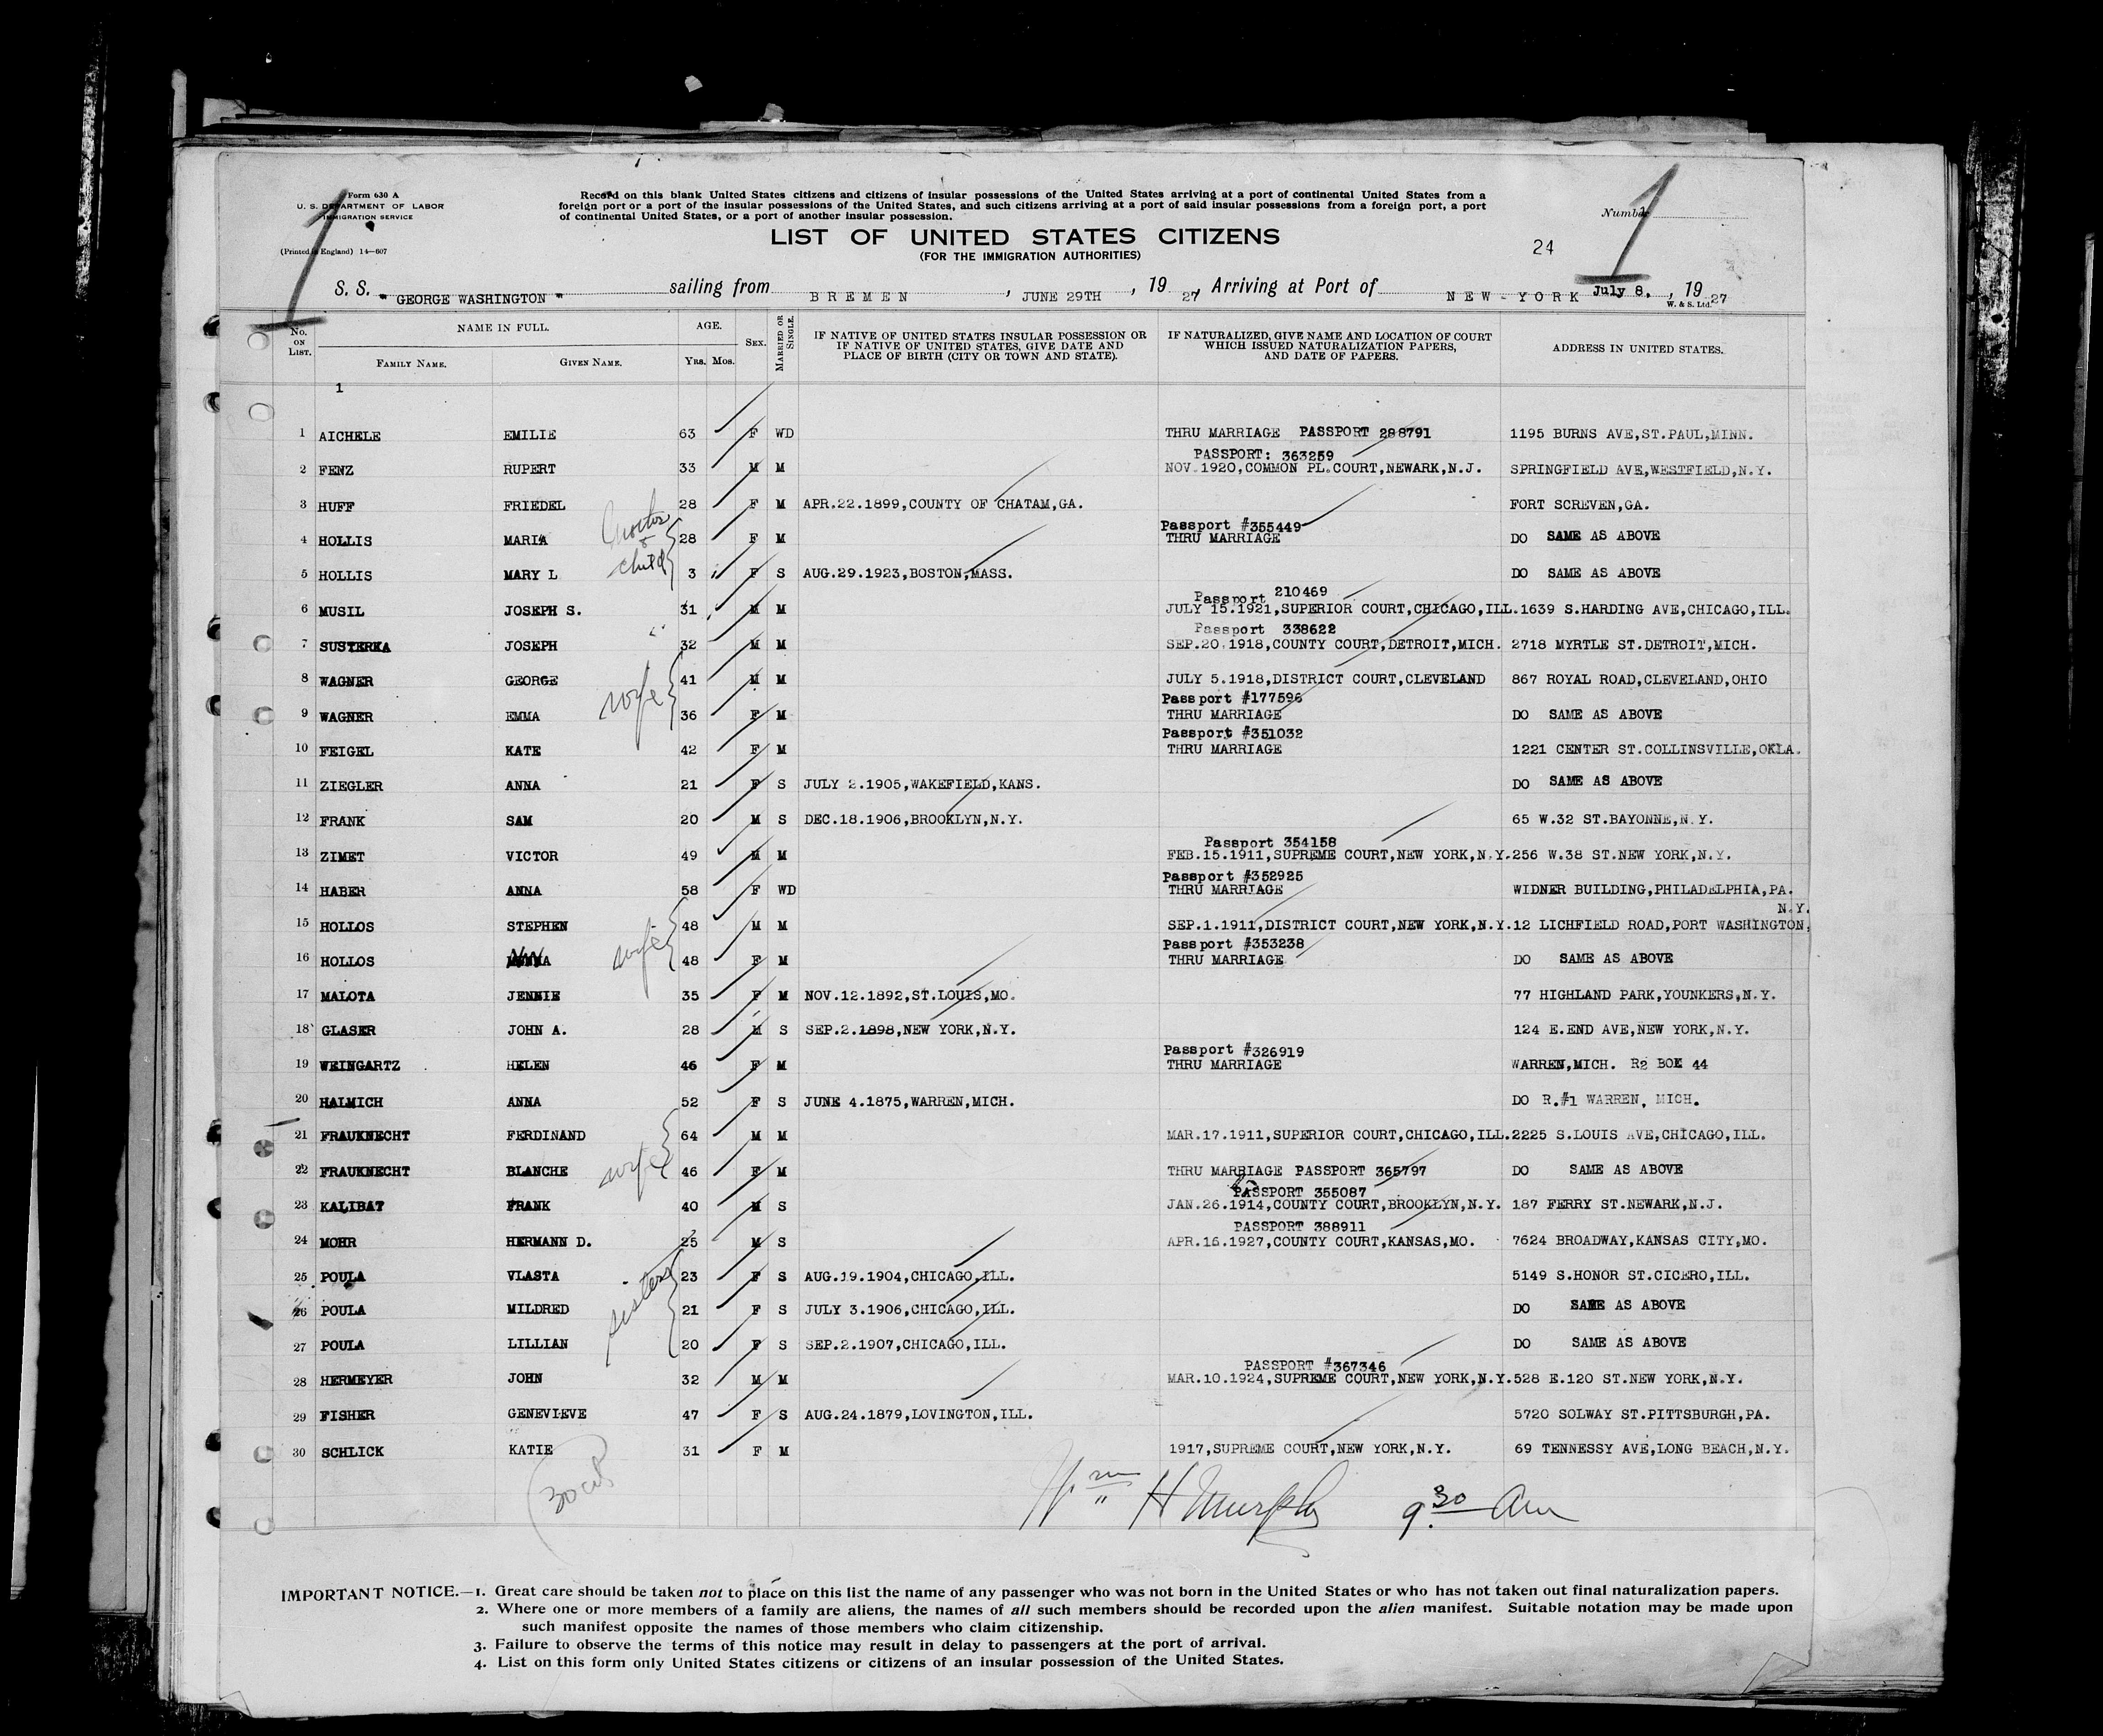 Form 630 A
U. S. DEPARTMENT OF LABOR
IMMIGRATION SERVICE
(Printed in England) 14—607
1
Record on this blank United States citizens and citizens of insular possessions of the United States arriving at a port of continental United States from a
foreign port or a port of the insular possessions of the United States, and such citizens arriving at a port of said insular possessions from a foreign port, a port
of continental United States, or a port of another insular possession.
Number
1
LIST OF UNITED STATES CITIZENS
(FOR THE IMMIGRATION AUTHORITIES)
24
S. S. "GEORGE WASHINGTON" sailing from BREMEN, JUNE 29TH, 1927, Arriving at Port of NEW-YORK July 8, 1927
W. & S. Ltd.
No. ON LIST. NAME IN FULL. FAMILY NAME. GIVEN NAME. AGE. Yrs. Mos. SEX. MARRIED OR SINGLE. IF NATIVE OF UNITED STATES INSULAR POSSESSION OR IF NATIVE OF UNITED STATES, GIVE DATE AND PLACE OF BIRTH (CITY OR TOWN AND STATE). IF NATURALIZED, GIVE NAME AND LOCATION OF COURT WHICH ISSUED NATURALIZATION PAPERS, AND DATE OF PAPERS. ADDRESS IN UNITED STATES.
1
1 AICHELE EMILIE 63 F WD THRU MARRIAGE PASSPORT 288791 1195 BURNS AVE,ST.PAUL,MINN.
PASSPORT: 363259
2 FENZ RUPERT 33 M M NOV.1920,COMMON PL.COURT,NEWARK,N.J. SPRINGFIELD AVE,WESTFIELD,N.Y.
3 HUFF FRIEDEL 28 F M APR.22.1899,COUNTY OF CHATAM,GA. FORT SCREVEN,GA.
Passport #355449
4 HOLLIS MARIA 28 F M THRU MARRIAGE DO SAME AS ABOVE
child
5 HOLLIS MARY L 3 F S AUG.29.1923,BOSTON,MASS. DO SAME AS ABOVE
Passport 210469
6 MUSIL JOSEPH S. 31 M M JULY 15.1921,SUPERIOR COURT,CHICAGO,ILL. 1639 S.HARDING AVE,CHICAGO,ILL.
Passport 338622
7 SUSTERKA JOSEPH 32 M M SEP.20.1918,COUNTY COURT,DETROIT,MICH. 2718 MYRTLE ST.DETROIT,MICH.
8 WAGNER GEORGE 41 M M JULY 5.1918,DISTRICT COURT,CLEVELAND 867 ROYAL ROAD,CLEVELAND,OHIO
wife
Passport #177596
9 WAGNER EMMA 36 F M THRU MARRIAGE DO SAME AS ABOVE
Passport #351032
10 FEIGEL KATE 42 F M THRU MARRIAGE 1221 CENTER ST.COLLINSVILLE,OKLA.
11 ZIEGLER ANNA 21 F S JULY 2.1905,WAKEFIELD,KANS. DO SAME AS ABOVE
12 FRANK SAM 20 M S DEC.18.1906,BROOKLYN,N.Y. 65 W.32 ST.BAYONNE,N.Y.
Passport 354158
13 ZIMET VICTOR 49 M M FEB.15.1911,SUPREME COURT,NEW YORK,N.Y. 256 W.38 ST.NEW YORK,N.Y.
Passport #352925
14 HABER ANNA 58 F WD THRU MARRIAGE WIDNER BUILDING,PHILADELPHIA,PA.
N.Y.
15 HOLLOS STEPHEN 48 M M SEP.1.1911,DISTRICT COURT,NEW YORK,N.Y. 12 LICHFIELD ROAD,PORT WASHINGTON,
wife
Passport #353238
16 HOLLOS 48 F M THRU MARRIAGE DO SAME AS ABOVE
17 MALOTA JENNIE 35 F M NOV.12.1892,ST.LOUIS,MO. 77 HIGHLAND PARK,YOUNKERS,N.Y.
18 GLASER JOHN A. 28 M S SEP.2.1898,NEW YORK,N.Y. 124 E.END AVE,NEW YORK,N.Y.
Passport #326919
19 WEINGARTZ HELEN 46 F M THRU MARRIAGE WARREN,MICH. R2 BOX 44
20 HALMICH ANNA 52 F S JUNE 4.1875,WARREN,MICH. DO R.#1 WARREN, MICH.
21 FRAUKNECHT FERDINAND 64 M M MAR.17.1911,SUPERIOR COURT,CHICAGO,ILL. 2225 S.LOUIS AVE,CHICAGO,ILL.
wife
22 FRAUKNECHT BLANCHE 46 F M THRU MARRIAGE PASSPORT 365797 DO SAME AS ABOVE
PASSPORT 355087
23 KALIBAT FRANK 40 M S JAN.26.1914,COUNTY COURT,BROOKLYN,N.Y. 187 FERRY ST.NEWARK,N.J.
PASSPORT 388911
24 MOHR HERMANN D. 25 M S APR.16.1927,COUNTY COURT,KANSAS,MO. 7624 BROADWAY,KANSAS CITY,MO.
25 POULA VLASTA 23 F S AUG.19.1904,CHICAGO,ILL. 5149 S.HONOR ST.CICERO,ILL.
sisters
26 POULA MILDRED 21 F S JULY 3.1906,CHICAGO,ILL. DO SAME AS ABOVE
27 POULA LILLIAN 20 F S SEP.2.1907,CHICAGO,ILL. DO SAME AS ABOVE
PASSPORT #367346
28 HERMEYER JOHN 32 M M MAR.10.1924,SUPREME COURT,NEW YORK,N.Y. 528 E.120 ST.NEW YORK,N.Y.
29 FISHER GENEVIEVE 47 F S AUG.24.1879,LOVINGTON,ILL. 5720 SOLWAY ST.PITTSBURGH,PA.
30 SCHLICK KATIE 31 F M 1917,SUPREME COURT,NEW YORK,N.Y. 69 TENNESSY AVE,LONG BEACH,N.Y.
Wm H Murphy 9.30 Am
IMPORTANT NOTICE.—1. Great care should be taken not to place on this list the name of any passenger who was not born in the United States or who has not taken out final naturalization papers.
2. Where one or more members of a family are aliens, the names of all such members should be recorded upon the alien manifest. Suitable notation may be made upon
such manifest opposite the names of those members who claim citizenship.
3. Failure to observe the terms of this notice may result in delay to passengers at the port of arrival.
4. List on this form only United States citizens or citizens of an insular possession of the United States.